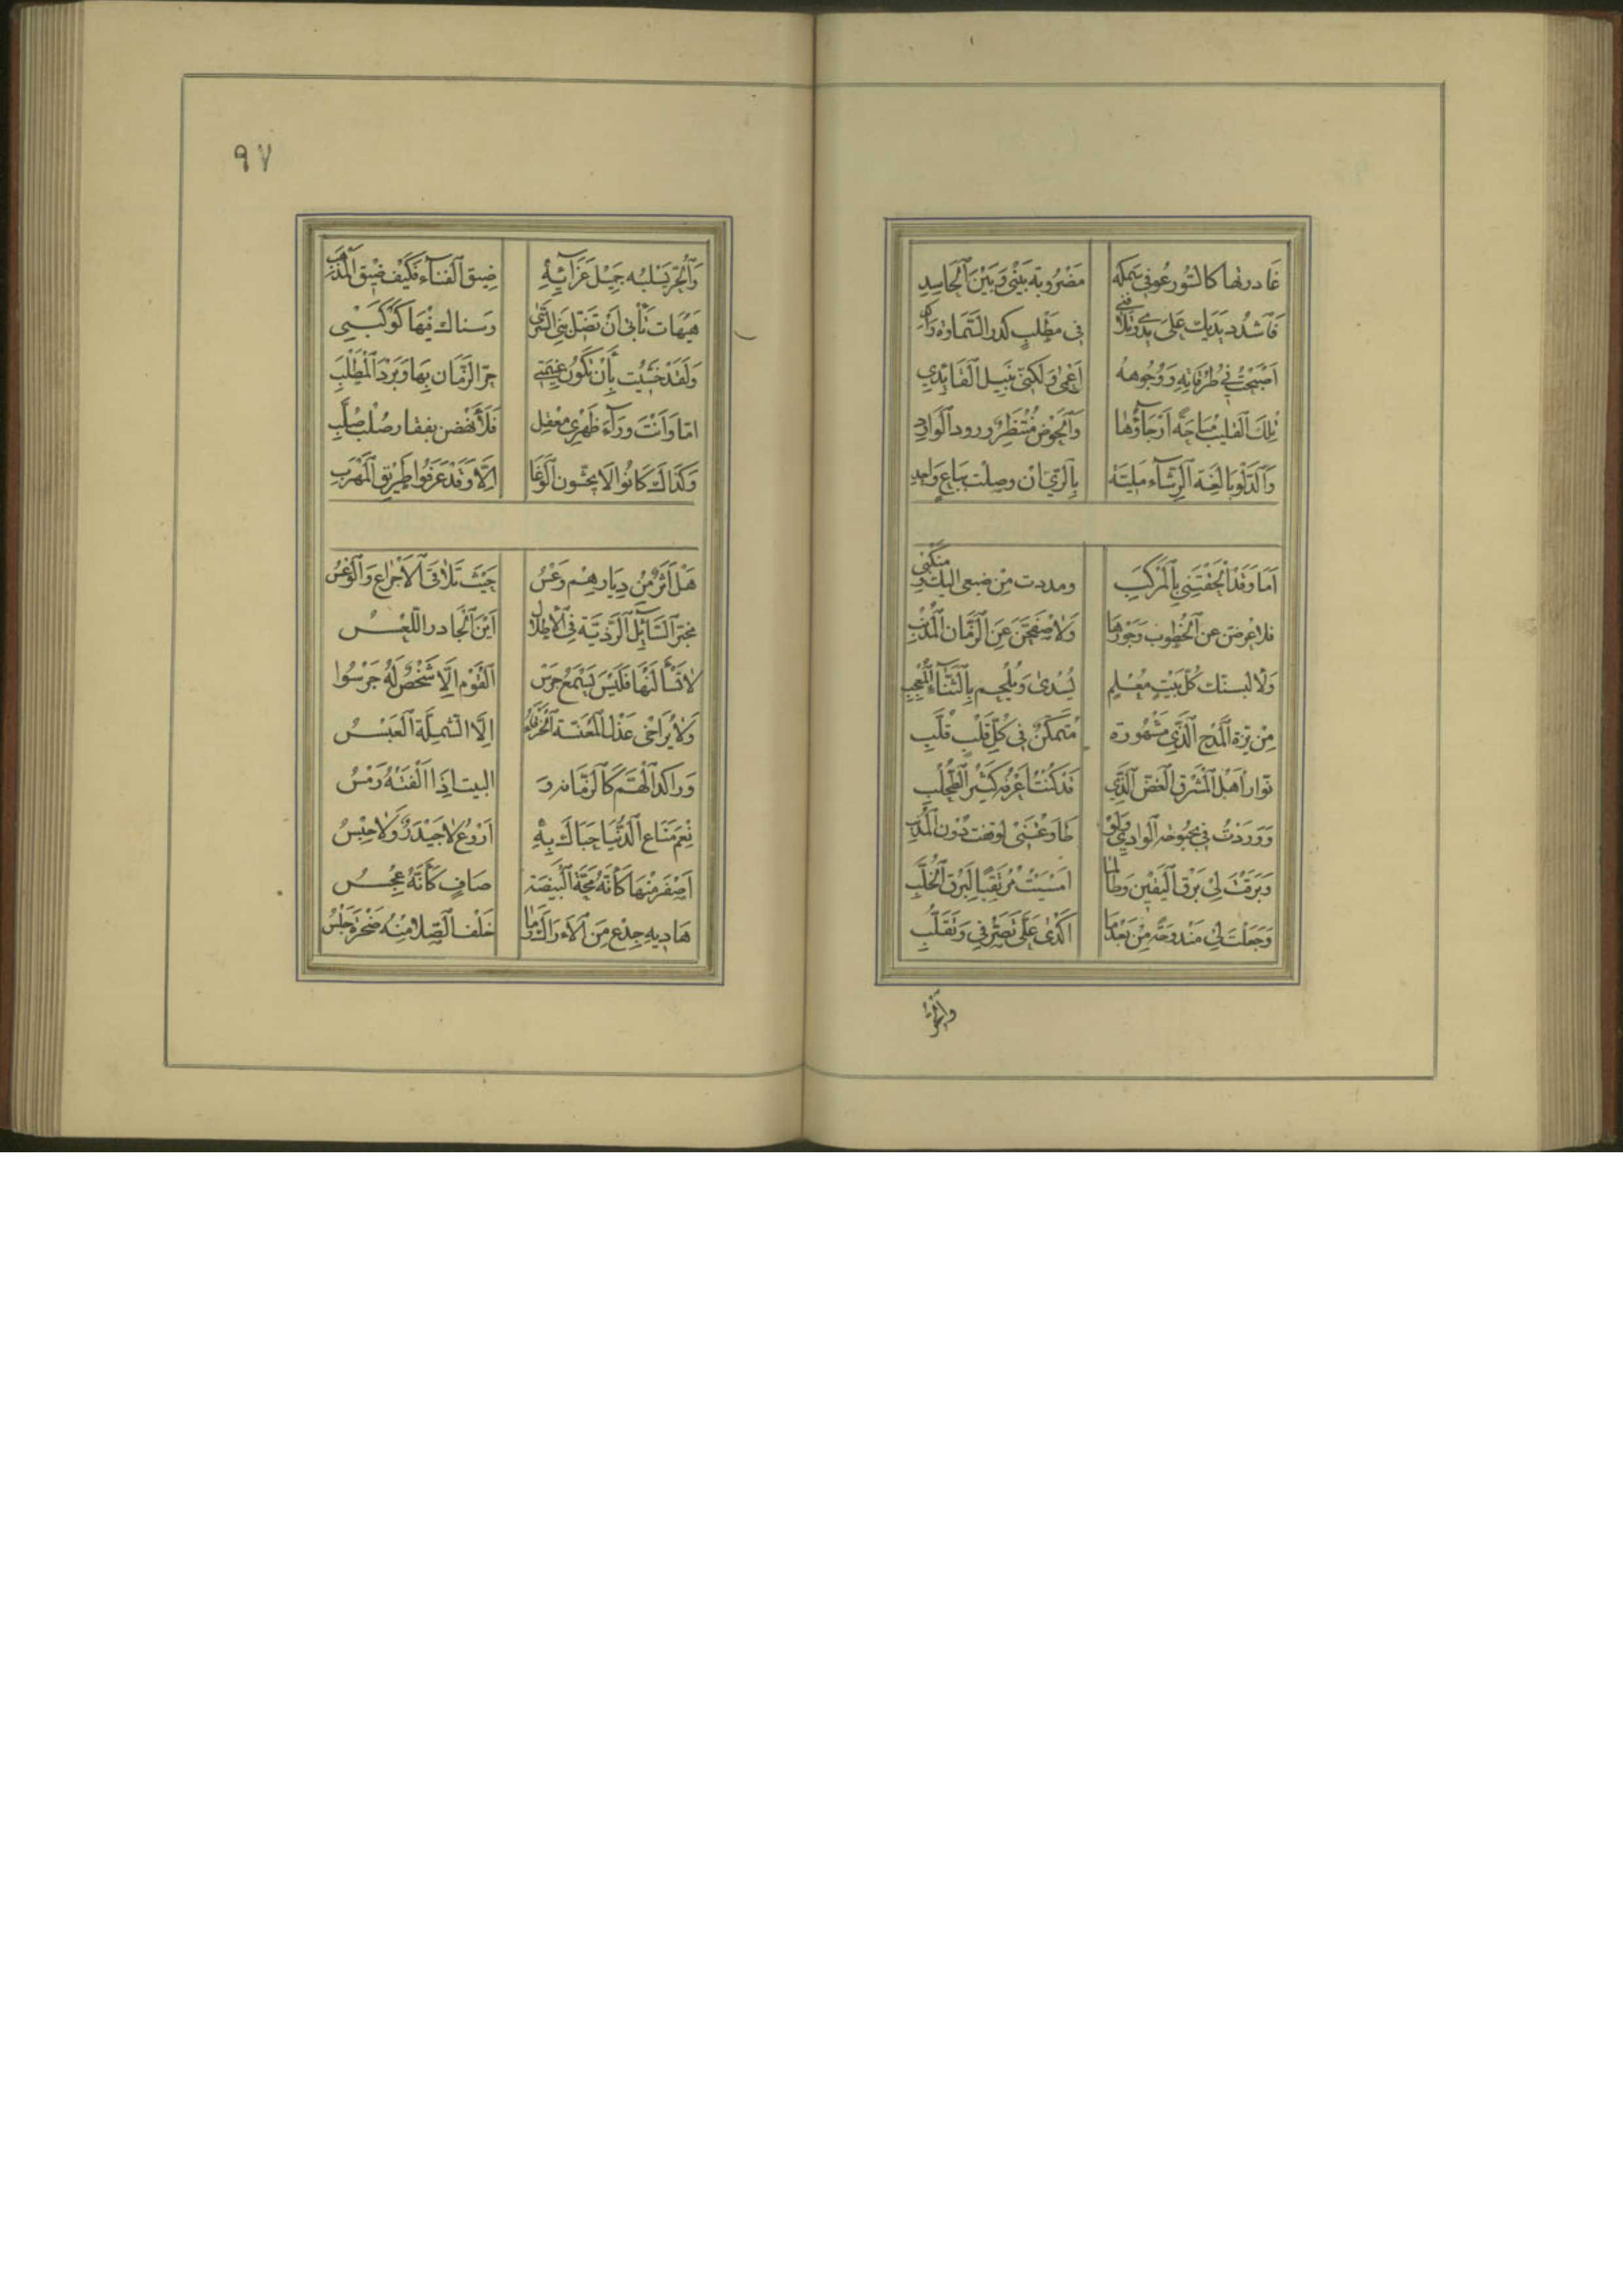 غَادرتها كالسّور عُوفِي سَمكه مَضْرُوبة بَيْنى وَبَيْنَ اْلحَاسِدِ
فَاشدُد يَدَيك عَلىَ يدي وتلافنى فى مَطْلبٍ كدر السَّماوة راكد
اَصْبَحْتُ فِي طُرُقَاتِهِ وَوُجُوهِهُ اَعْمى وَلَكِنِّى نَبيل اْلقَائِدِي
تِلكَ القليبُ مُباحَةً اَرْجَآؤُهَا وَاْلحَوْضُ مُنْتَظِرٌ ورود اْلوَارِدِ
وَاْلدَّلْو بَالغِة اْلرِّشَآء مَلِيئَة بِاْلرّيّ انْ وصِلتْ بِبَاعٍ وَاحِدِ
اَمَا وَقَدْ اَلْحَقْتَنِي بِاْلمَرْكَبِ ومددت مِنْ ضبعى اليك ومنكبى
فلاعرضن عن اْلخطوب وَجَوْرِهَا وَلاصْفَحَنَّ عَنِ اْلزَّمَان اْلمُذْنِبِ
وَلالبسنّك كُلّ بَيْتٍ مُعْلَمٍ يُسْدَى وَيُلْحِم بِاْلثَّنَآءِ اْلمُعْجِبِ
مِنْ بزة اْلمَدْح اْلَّذِي مَشْهُورَة مُتَمَكِّنٌ فِى كُلِّ قَلْبٍ قُلَّبِ
نَوّار اَهْل اْلمَشْرِق اْلغَضّ اْلَّذِي قَدْ كُنْتُ اَعْرِفُه كَثِيْر اْلطُّحْلُبِ
وَوَرَدْتُ فِى بحبُوحة اْلوَادِي وَلَوْ خَلَّيْتَنِى لَوقفت دُونَ اْلمِذْنَبِ
وَبَرَقْتَ لِى بَرْق اْليَقِيْن وَطَالمَا اَمْسَيْتُ مُرْتَقِبًا لِبَرْق اْلخُلَّبِ
وَجَعَلْتَ لِى مَنْدوحَةً مِنْ بَعْدِمَا اَكْدَى عَلَىَّ تَصَرُّفِى وَتَقَلُّبِ
وَاْلحُرُّ
٩٧
وَاْلحُرّ يَسْلُبُه جَمِيْل عَزَآئِهِ ضِيق اْلفِنَآء فَكَيْفَ ضِيْق اْلمَذْهَبِ
هَيْهَات تَأْبَى اَنْ تَضِلّ بِيَ السُّرَى وَسناك فِيْهَا كَوْكَبِى
وَلَقَدْ خَشِيْت بِأَنْ تَكُوْن غَنِيْمَتِى حَرّ الزَّمَان بِهَا وَبَرْدَ اْلمَطْلَبِ
امّا وَاَنْتَ وَرَآءَ ظَهْرِي مَعْقِل فَلَأَنْهَضنّ بفقار صُلْبٍ صُلَّبِ
وَكَذَاكَ كَانُوا لا يَخْشَون اْلوَغَا اِلّا وَقَدْ عَرَفُوا طَرِيْق اْلمَهْرَبِ
هَلْ اَثَرٌ مِنْ دِيَارِهِم وَعْسُ حَيْثُ تَلاقَى اْلاَجْراع وَاْلوَعْسُ
مخبّر السَّآئِل اْلرَّذيّة فِى اْلأطلال اَيْنَ اْلجَآدر اللّعْسُ
لا تَسْأَلَنْهَا فَلَيْسَ يَسْمَعُ جَرْسَ اْلقَوْم اِلَّا شَخْصٌ لَهُ جَرْسُوا
اِلّا الشِّمِلَّة اْلعَبْسُ
وَرَاكد اْلهَمّ كَالزَّمَانَة وَ البيت اِذَا اَلْفَتْهُ رَمْسُ
نِعْمَ مَتَاع اْلدُّنْيَا حَبَاكَ بِهِ اَرْوَعُ لا جَيْدَرٌ وَلا جِبْسُ
اَصْفَر مِنْهَا كَأَنَّهُ مُحَّة اْلبَيْضَة صَافٍ كَأَنَّهُ عِجْسُ
هَادِيه جِذْعٌ مِنَ اْلاَرَاك وَمَا خَلْف اْلصَّلا مِنْهُ صَخْرَةٌ جَلْسُ